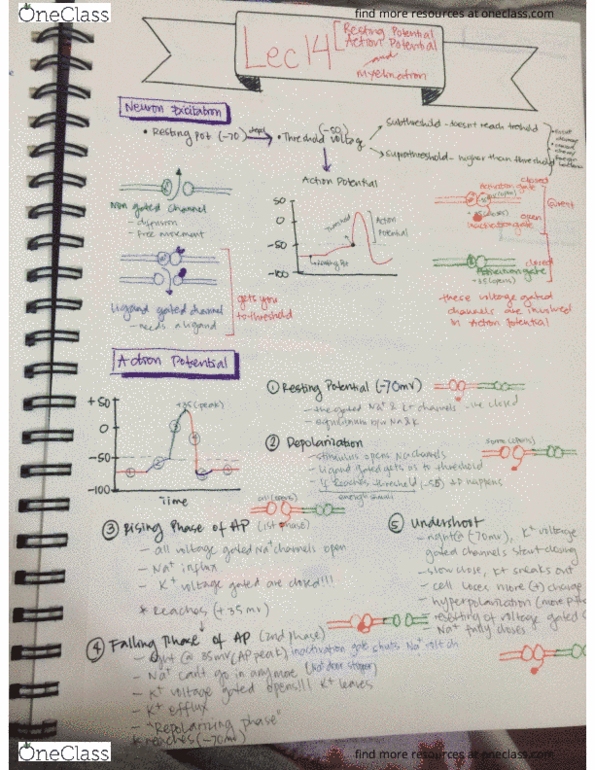 OneClass
find more resources at oneclass.com
Lec 14
Resting Potential
Action Potential
and
Myelination
Neuron Excitation
• Resting Pot (-70)
• Threshold voltage
Subthreshold - doesn't reach
Suprathreshold - higher than threshold
Action Potential
50
0
-50
-100
Threshold
Action
Potential
Resting Pot
Non gated channel
- diffusion
- free movement
Ligand gated channel
- needs a ligand
gets you
to threshold
closed
Activation gate
open
Inactivation gate
closed
Activation gate
- these voltage gated
channels are involved
in Action Potential
Action Potential
+50
0
-50
-100
+35 (peak)
Time
① Resting Potential (-70mv)
- the gated Na+ & K+ channels are closed
- equilibrium b/w Na & K
② Depolarization
- stimulus opens Na channels
- ligand gated gets us to threshold
- if reaches threshold AP happens
③ Rising Phase of AP (1st phase)
- all voltage gated Na+ channels open
- Na+ influx
- K+ voltage gated are closed!!!
* Reaches (+35mv)
④ Falling Phase of AP (2nd phase)
- right @ 35mv (AP peak) inactivation gate shuts Na+ volt ch
- Na+ can't go in anymore
- K+ voltage gated opens!!! K+ leaves
- K+ efflux
- "Repolarizing phase"
* reaches (-70mv)
⑤ Undershoot
- right @ (-70mv), K+ voltage
gated channels start closing
- slow close, K+ sneaks out
- cell loses more (+) charge
- hyperpolarization (more
- resetting of voltage gated
Na+ fully closes
OneClass
find more resources at oneclass.com